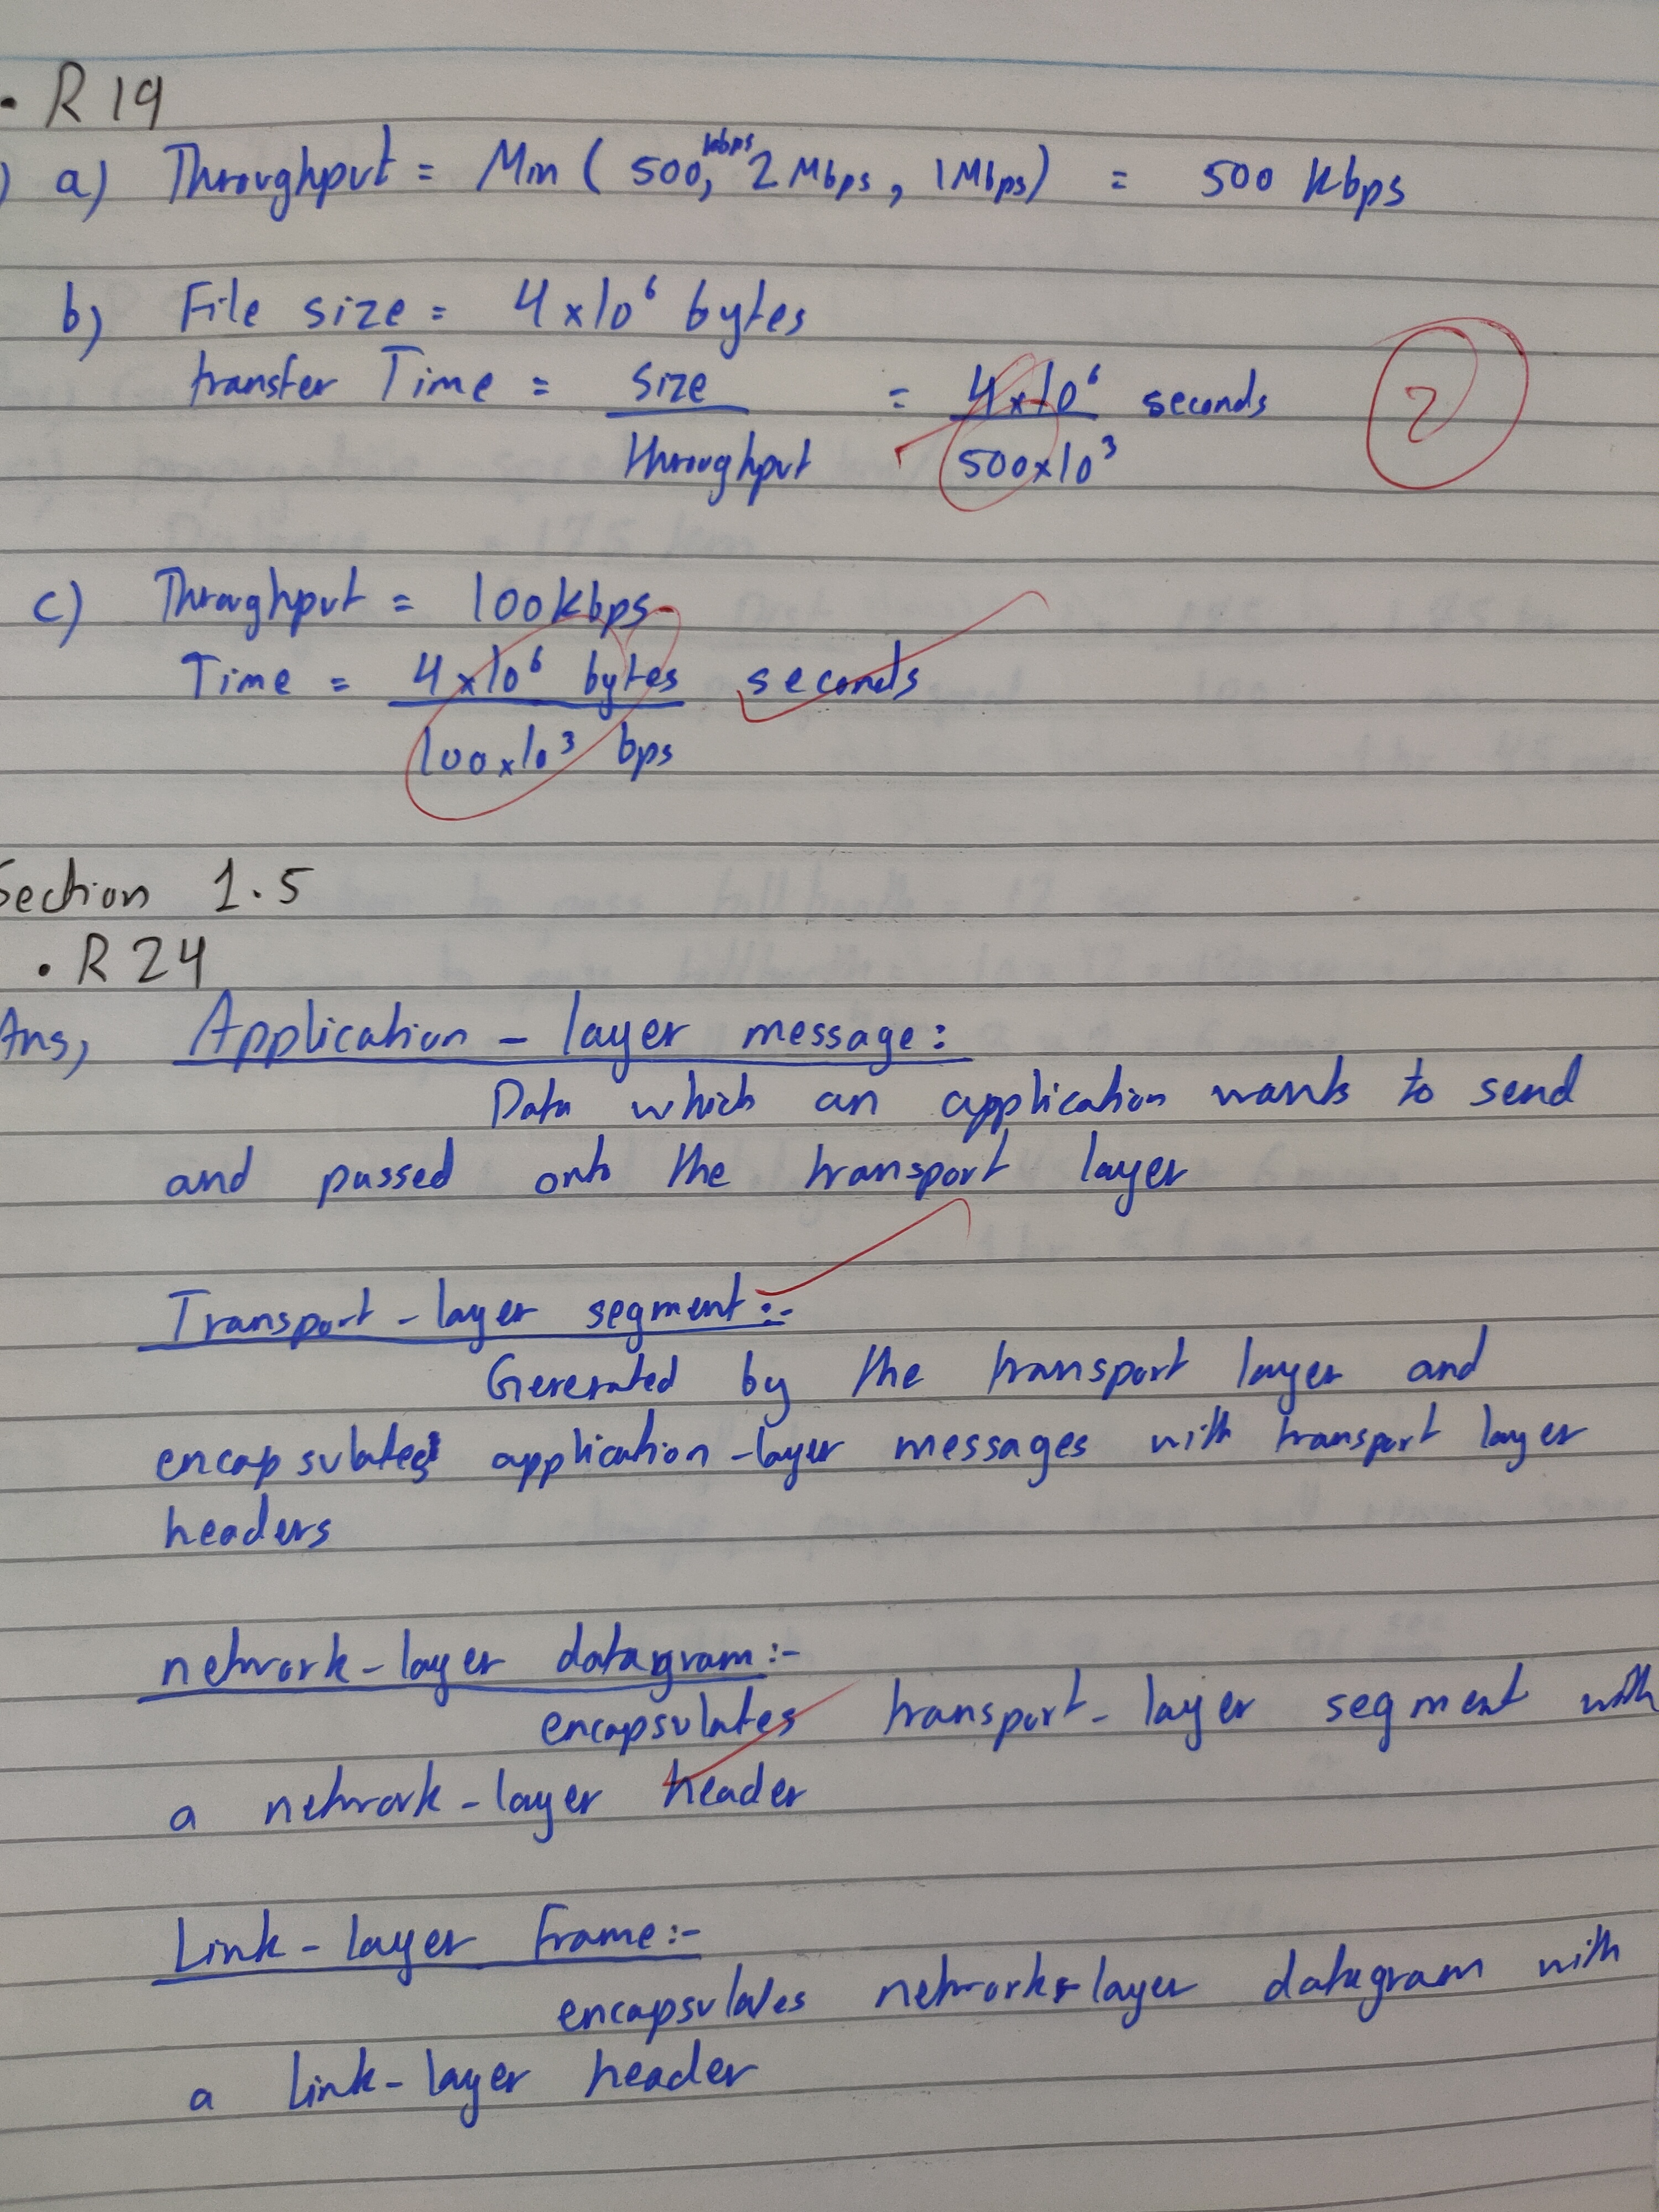 • R 19
) a) Throughput = Min ( 500 kbps, 2 Mbps, 1 Mbps) = 500 kbps
b) File size = 4 x 10⁶ bytes
transfer Time = size / throughput = 4x10⁶ / 500x10³ seconds
2
c) Throughput = 100 kbps
Time = 4 x 10⁶ bytes / 100 x 10³ bps seconds
Section 1.5
• R 24
Ans, Application - layer message:
Data which an application wants to send
and passed onto the transport layer
Transport - layer segment:-
Generated by the transport layer and
encapsulates application - layer messages with transport layer
headers
network - layer datagram:-
encapsulates transport - layer segment with
a network - layer header
Link - layer Frame:-
encapsulates network - layer datagram with
a link - layer header